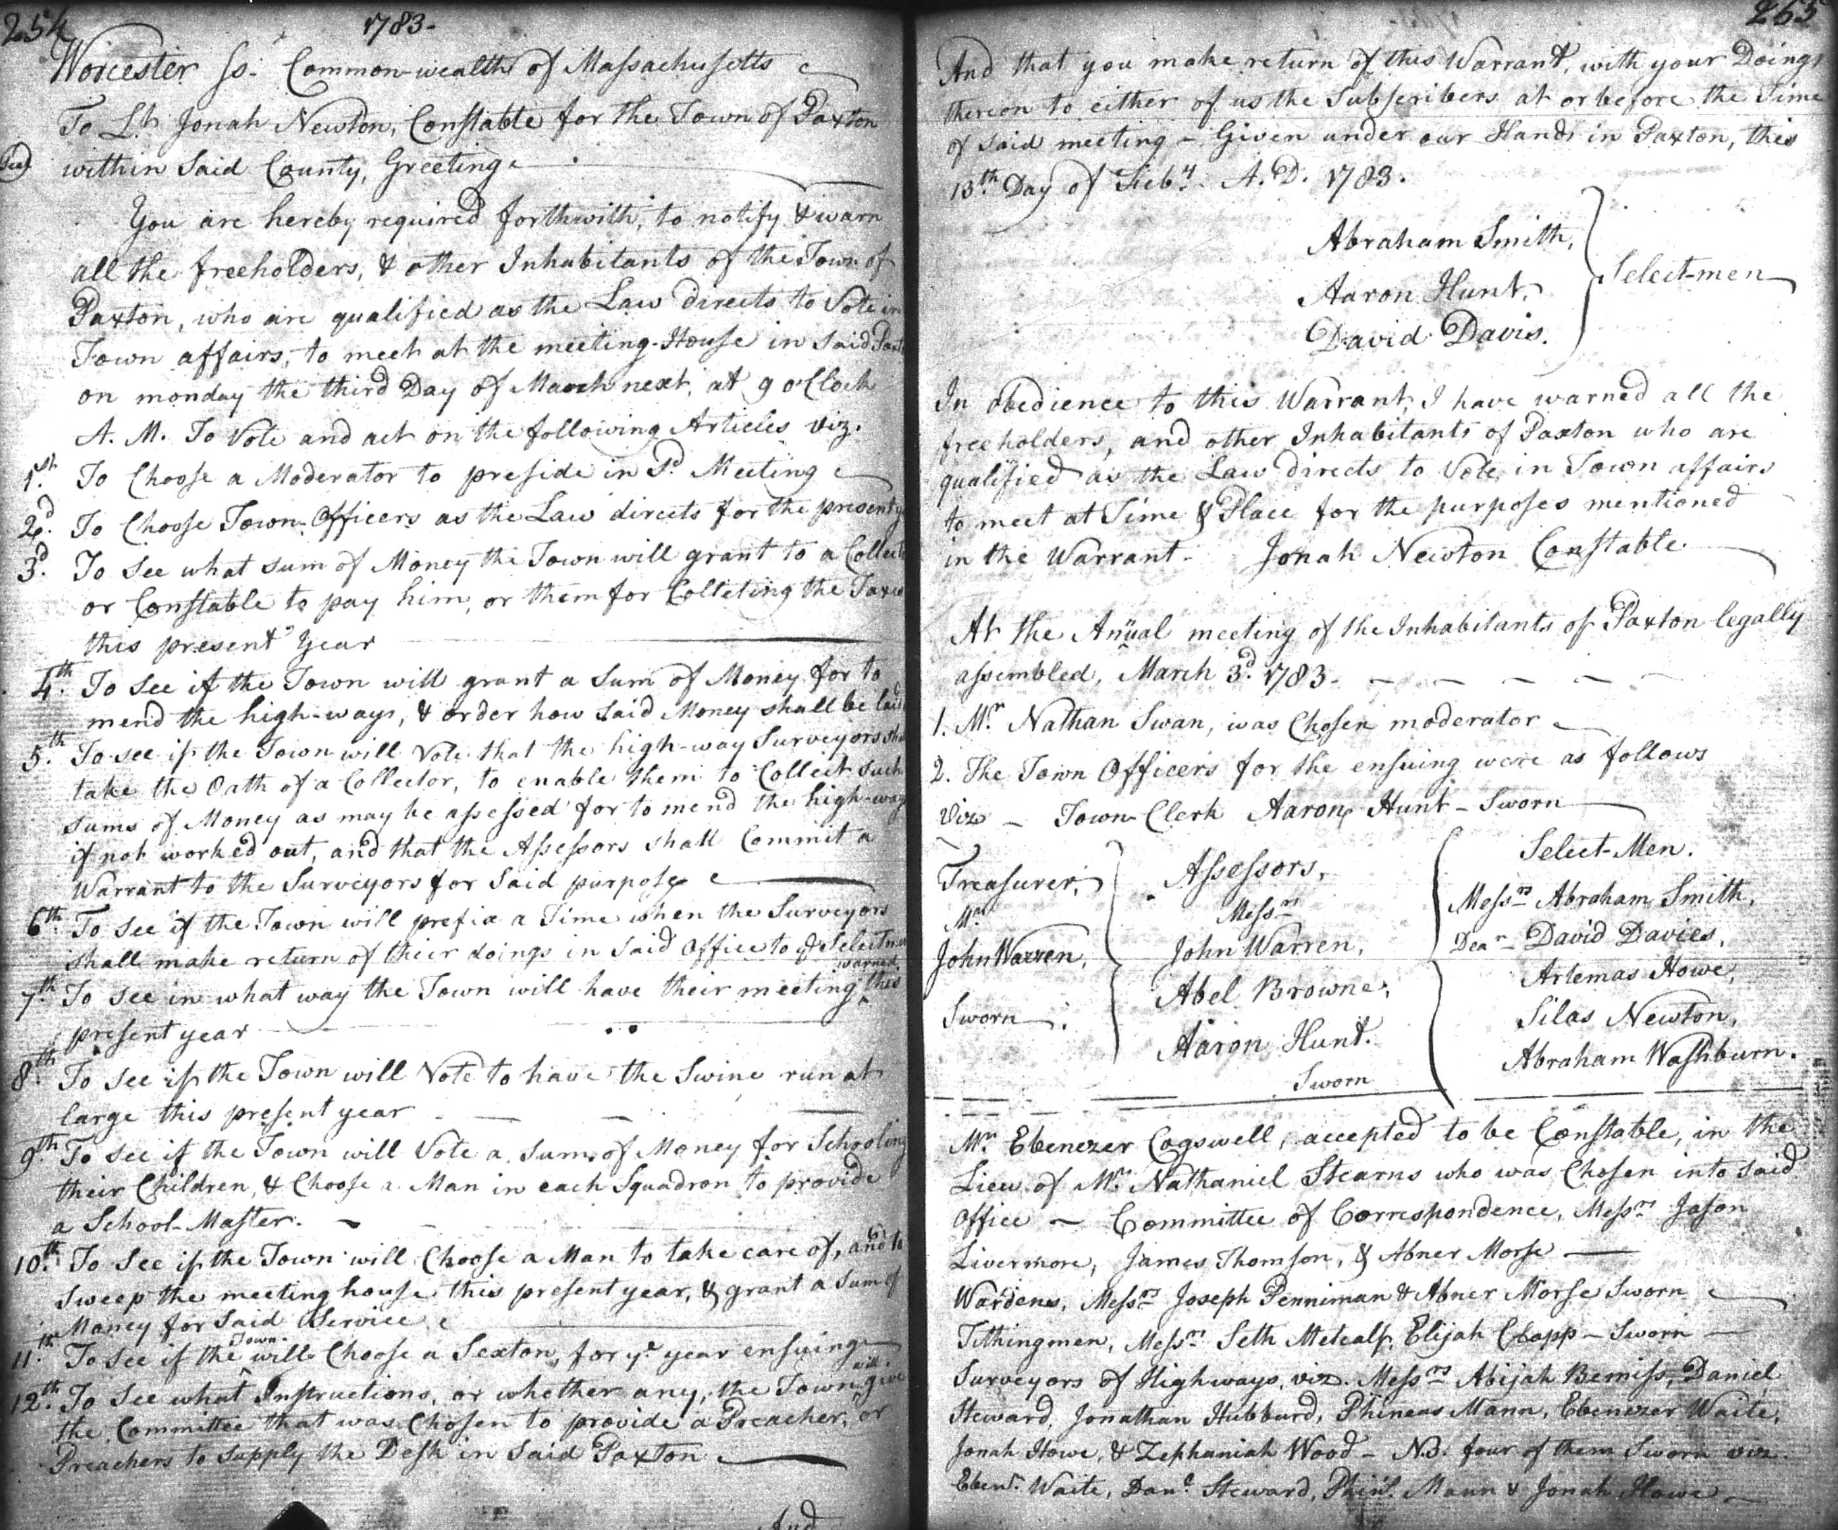 254
1783-
Worcester ss. Common-wealth of Massachusetts
To Lt. Jonah Newton, Constable for the Town of Paxton
within Said County, Greeting.
You are hereby required forthwith, to notify & warn
all the freeholders, & other Inhabitants of the Town of
Paxton, who are qualified as the Law directs to Vote in
Town affairs, to meet at the meeting-House in Said
on monday the third Day of March next, at 9 o'Clock
A. M. To Vote and act on the following Articles viz.
1.st To Choose a Moderator to preside in Sd. Meeting
2.d To Choose Town-Officers as the Law directs for the present
3.d To See what sum of Money the Town will grant to a
or Constable to pay him, or them for Colleting the Taxes
this present Year
4.th To See if the Town will grant a Sum of Money for to
mend the high-ways, & order how Said Money shall be laid
5.th To see if the Town will Vote that the high-way Surveyors
take the Oath of a Collector, to enable them to Collect such
sums of Money as may be assessed for to mend the high-ways
if not worked out, and that the Assessors shall Commit a
Warrant to the Surveyors for Said purpose
6.th To See if the Town will prefix a Time when the Surveyors
shall make return of their doings in Said Office to ye
7.th To See in what way the Town will have their meeting warned this
present year
8.th To See if the Town will Vote to have the Swine run at
large this present year
9.th To See if the Town will Vote a Sum of Money for Schooling
their Children, & Choose a Man in each Squadron to provide
a School-Master.
10.th To See if the Town will Choose a Man to take care of, and to
Sweep the meeting house this present year, & grant a Sum of
Money for Said Service
11.th To See if the Town will Choose a Sexton for ye year ensuing
12.th To See what Instructions, or whether any, the Town will give
the Committee that was Chosen to provide a Preacher, or
Preachers to Supply the Desk in Said Paxton
And
255
And that you make return of this Warrant, with your Doings
thereon to either of us the Subscribers at or before the Time
of said meeting - Given under our Hands in Paxton, this
13.th Day of Feb.y A. D. 1783.
Abraham Smith,
Aaron Hunt,
David Davis.
Select-men
In obedience to this Warrant, I have warned all the
freeholders, and other Inhabitants of Paxton who are
qualified as the Law directs to Vote in Town affairs
to meet at Time & Place for the purposes mentioned
in the Warrant - Jonah Newton Constable
At the Anual meeting of the Inhabitants of Paxton legally
assembled, March 3.d 1783.
1. Mr. Nathan Swan, was Chosen moderator
2. The Town Officers for the ensuing were as follows
Viz - Town-Clerk Aaron Hunt - Sworn
Treasurer,
Mr.
John Warren,
Sworn
Assessors,
Messrs
John Warren,
Abel Browne,
Aaron Hunt.
Sworn
Select-Men.
Messrs Abraham Smith,
Dean David Davies,
Artemas Howe,
Silas Newton,
Abraham Washburn.
Mr. Ebenezer Cogswell, accepted to be Constable, in the
Lieu of Mr. Nathaniel Stearns who was Chosen into Said
Office - Committee of Correspondence, Messrs Jason
Livermore, James Thomson, & Abner Morse
Wardens, Messrs Joseph Penniman & Abner Morse Sworn
Tithingmen, Messrs Seth Metcalf, Elijah Clapp - Sworn
Surveyors of Highways, viz. Messrs Abijah Bemiss, Daniel
Steward, Jonathan Hubburd, Phineas Mann, Ebenezer Waite,
Jonah Howe, & Zephaniah Wood - NB. four of them Sworn viz.
Eben.r Waite, Dan.l Steward, Phin.s Mann & Jonah Howe